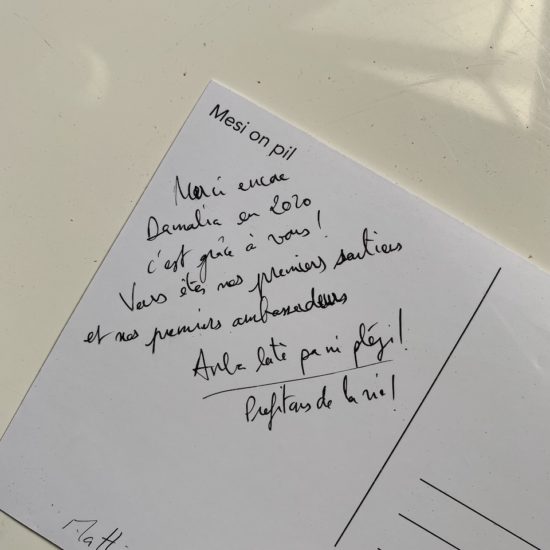 Mesi on pil
Merci encore
Damalia en 2020
c'est grâce à vous !
Vous êtes nos premiers soutiens
et nos premiers ambassadeurs
Anba latè pa ni plézi !
Profitons de la vie !
Matt